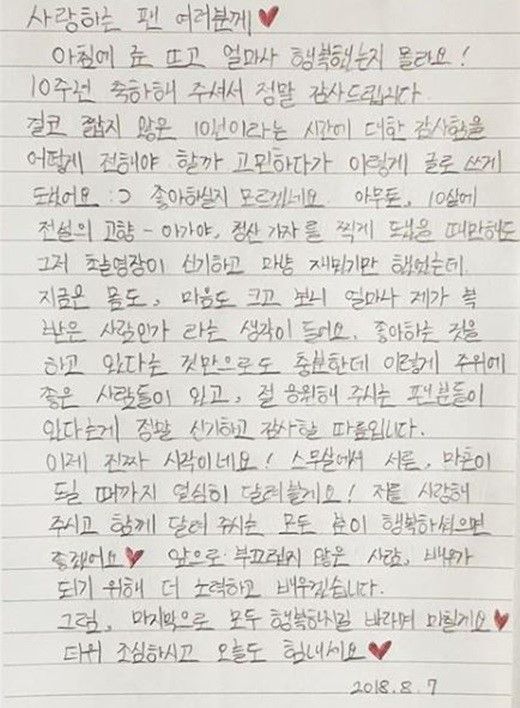 사랑하는 팬 여러분께♥
아침에 눈 뜨고 얼마나 행복했는지 몰라요!
10주년 축하해 주셔서 정말 감사드립니다.
결코 짧지 않은 10년이라는 시간에 대한 감사함을
어떻게 전해야 할까 고민하다가 이렇게 글로 쓰게
됐어요 :) 좋아하실지 모르겠네요. 아무튼, 10살에
전설의 고향 - 아가야, 청산가자를 찍게 됐을 때만해도
그저 촬영장이 신기하고 마냥 재밌기만 했었는데
지금은 몸도, 마음도 크고 보니 얼마나 제가 복
받은 사람인가 라는 생각이 들어요. 좋아하는 것을
하고 있다는 것만으로도 충분한데 이렇게 주위에
좋은 사람들이 있고, 절 응원해 주시는 팬분들이
있다는게 정말 신기하고 감사할 따름입니다.
이제 진짜 시작이네요! 스무살에서 서른, 마흔이
될 때까지 열심히 달려볼게요! 저를 사랑해
주시고 함께 달려 주시는 모든 분이 행복하셨으면
좋겠어요♥ 앞으로 부끄럽지 않은 사람, 배우가
되기 위해 더 노력하고 배우겠습니다.
그럼, 마지막으로 모두 행복하시길 바라며 마칠게요♥
더위 조심하시고 오늘도 힘내세요♥
2018.8.7